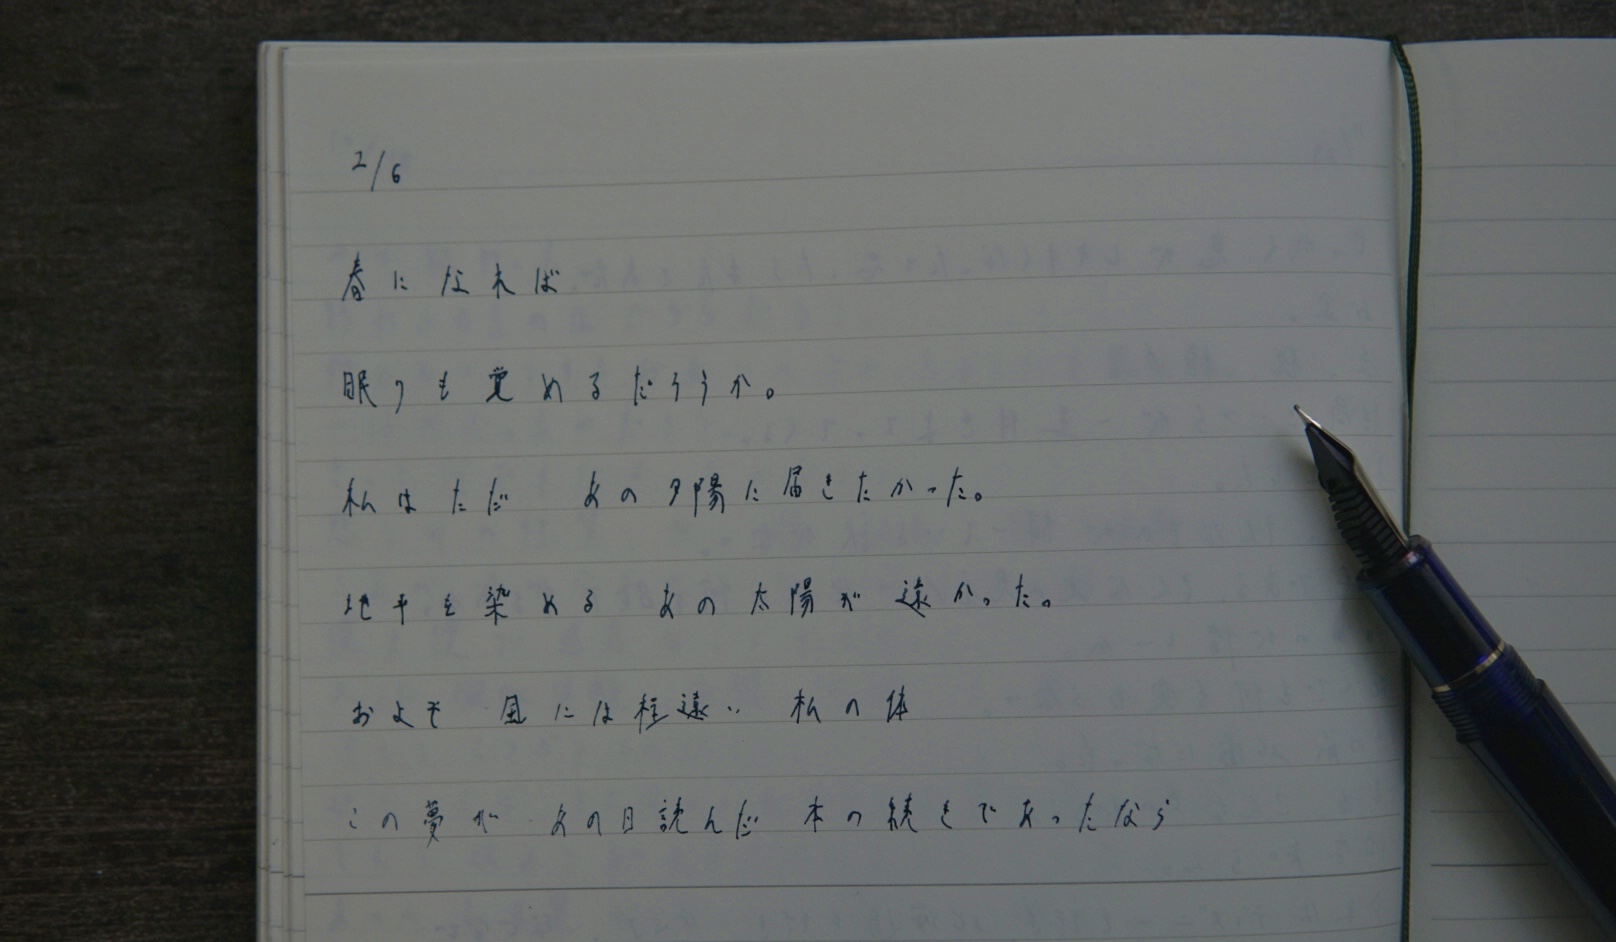 2/6
春になれば
眠りも覚めるだろうか。
私はただ　あの夕陽に届きたかった。
地平を染める　あの太陽が遠かった。
およそ　風には程遠い　私の体
この夢が　あの日読んだ　本の続きであったなら